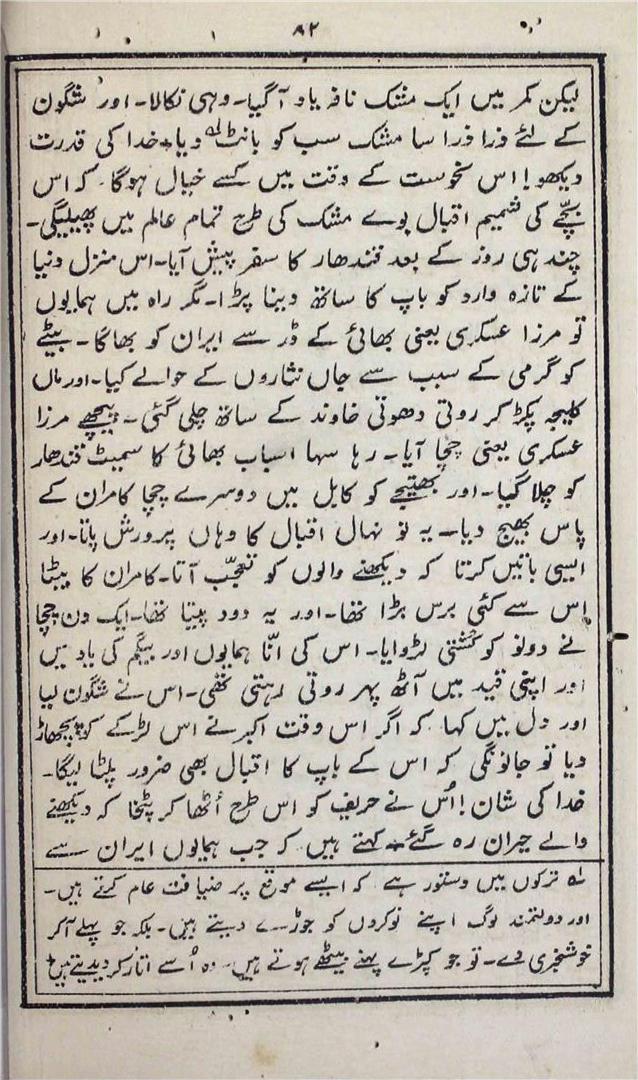 ۸۲
لیکن کمر میں ایک مشک نافہ یاد آ گیا۔ وہی نکالا۔ اور شگون
کے لئے ذرا ذرا سا مشک سب کو بانٹ لہ دیا + خدا کی قدرت
دیکھو! اس نحوست کے وقت میں کسے خیال ہوگا۔ کہ اس
بچّے کی شمیم اقبال بوے مشک کی طرح تمام عالم میں پھیلیگی۔
چند ہی روز کے بعد قندھار کا سفر پیش آیا۔ اس منزل دنیا
کے تازہ وارد کو باپ کا ساتھ دینا پڑا۔ مگر راہ میں ہمایوں
تو مرزا عسکری یعنی بھائی کے ڈر سے ایران کو بھاگا۔ بیٹے
کو گرمی کے سبب سے جاں نثاروں کے حوالے کیا۔ اور ماں
کلیجہ پکڑ کر روتی دھوتی خاوند کے ساتھ چلی گئی۔ پیچھے مرزا
عسکری یعنی چچا آیا۔ رہا سہا اسباب بھائی کا سمیٹ قندھار
کو چلا گیا۔ اور بھتیجے کو کابل میں دوسرے چچا کامران کے
پاس بھیج دیا۔ یہ نو نہال اقبال کا وہاں پرورش پاتا۔ اور
ایسی باتیں کرتا کہ دیکھنے والوں کو تعجّب آتا۔ کامران کا بیٹا
اس سے کئی برس بڑا تھا۔ اور یہ دود پیتا تھا۔ ایک دن چچا
نے دونو کو کشتی لڑوایا۔ اس کی انّا ہمایوں اور بیگم کی یاد میں
اور اپنی قید میں آٹھ پہر روتی رہتی تھی۔ اس نے شگون لیا
اور دل میں کہا کہ اگر اس وقت اکبر نے اس لڑکے کو پچھاڑ
دیا تو جانونگی کہ اس کے باپ کا اقبال بھی ضرور پلٹا لیگا۔
خدا کی شان! اُس نے حریف کو اس طرح اُٹھا کر پٹخا کہ دیکھنے
والے حیران رہ گئے + کہتے ہیں کہ جب ہمایوں ایران سے
لہ ترکوں میں دستور ہے کہ ایسے موقع پر ضیافت عام کرتے ہیں۔
اور دولتمند لوگ اپنے نوکروں کو جوڑے دیتے ہیں۔ بلکہ جو پہلے آکر
خوشخبری دے۔ تو جو کپڑے پہنے بیٹھے ہوتے ہیں۔ وہ اُسے اتار کر دیدیتے ہیں +